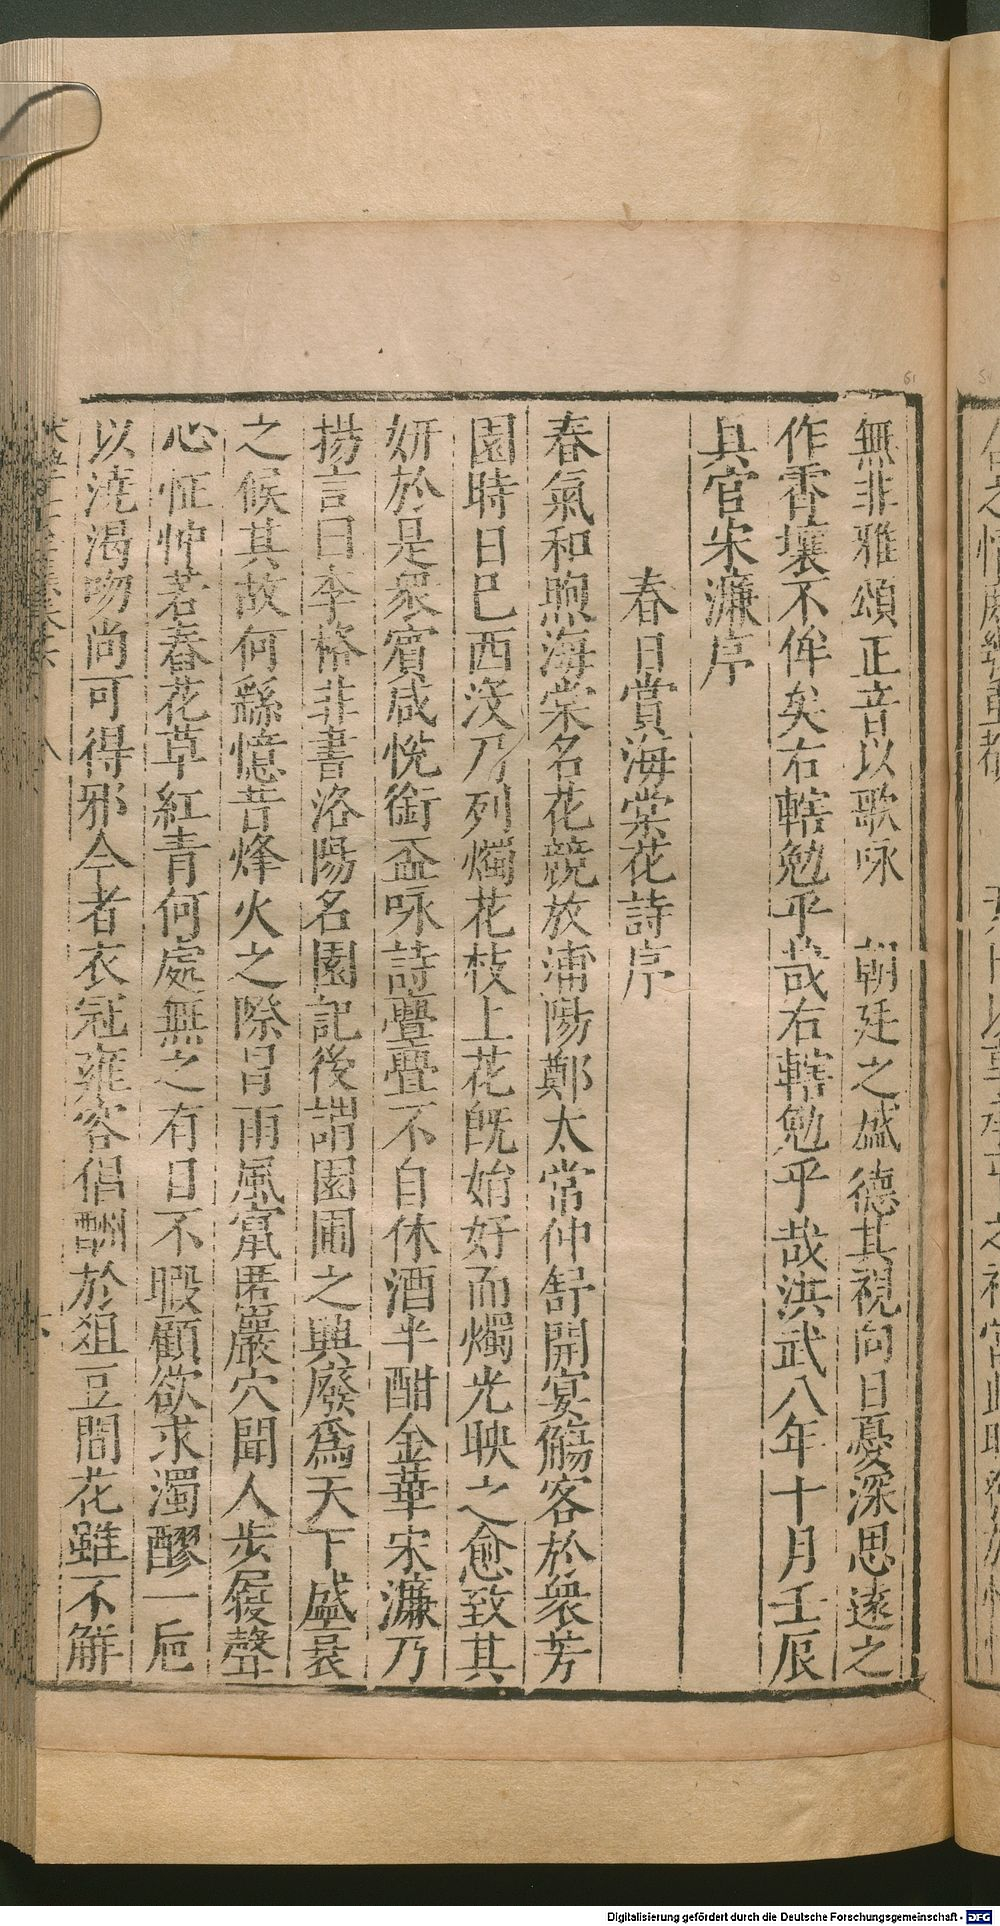 無非雅頌正音以歌咏　朝廷之盛德其視向日憂深思遠之
作霄壤不侔矣右轄勉乎哉右轄勉乎哉洪武八年十月壬辰
具官宋濂序
春日賞海棠花詩序
春氣和煦海棠名花競放浦陽鄭太常仲舒開宴觴客於衆芳
園時日已西沒乃列燭花枝上花旣姷好而燭光映之愈致其
妍於是衆賓咸悅銜盃咏詩亹亹不自休酒半酣金華宋濂乃
揚言曰李格非書洛陽名園記後謂園圃之興廢爲天下盛衰
之候其故何繇憶昔烽火之際冒雨風竄匿巖穴聞人步履聲
心怔忡若春花草紅靑何處無之有日不暇顧欲求濁醪一巵
以澆渴吻尚可得邪今者衣冠雍容倡酬於俎豆間花雖不觧
八
Digitalisierung gefördert durch die Deutsche Forschungsgemeinschaft - DFG